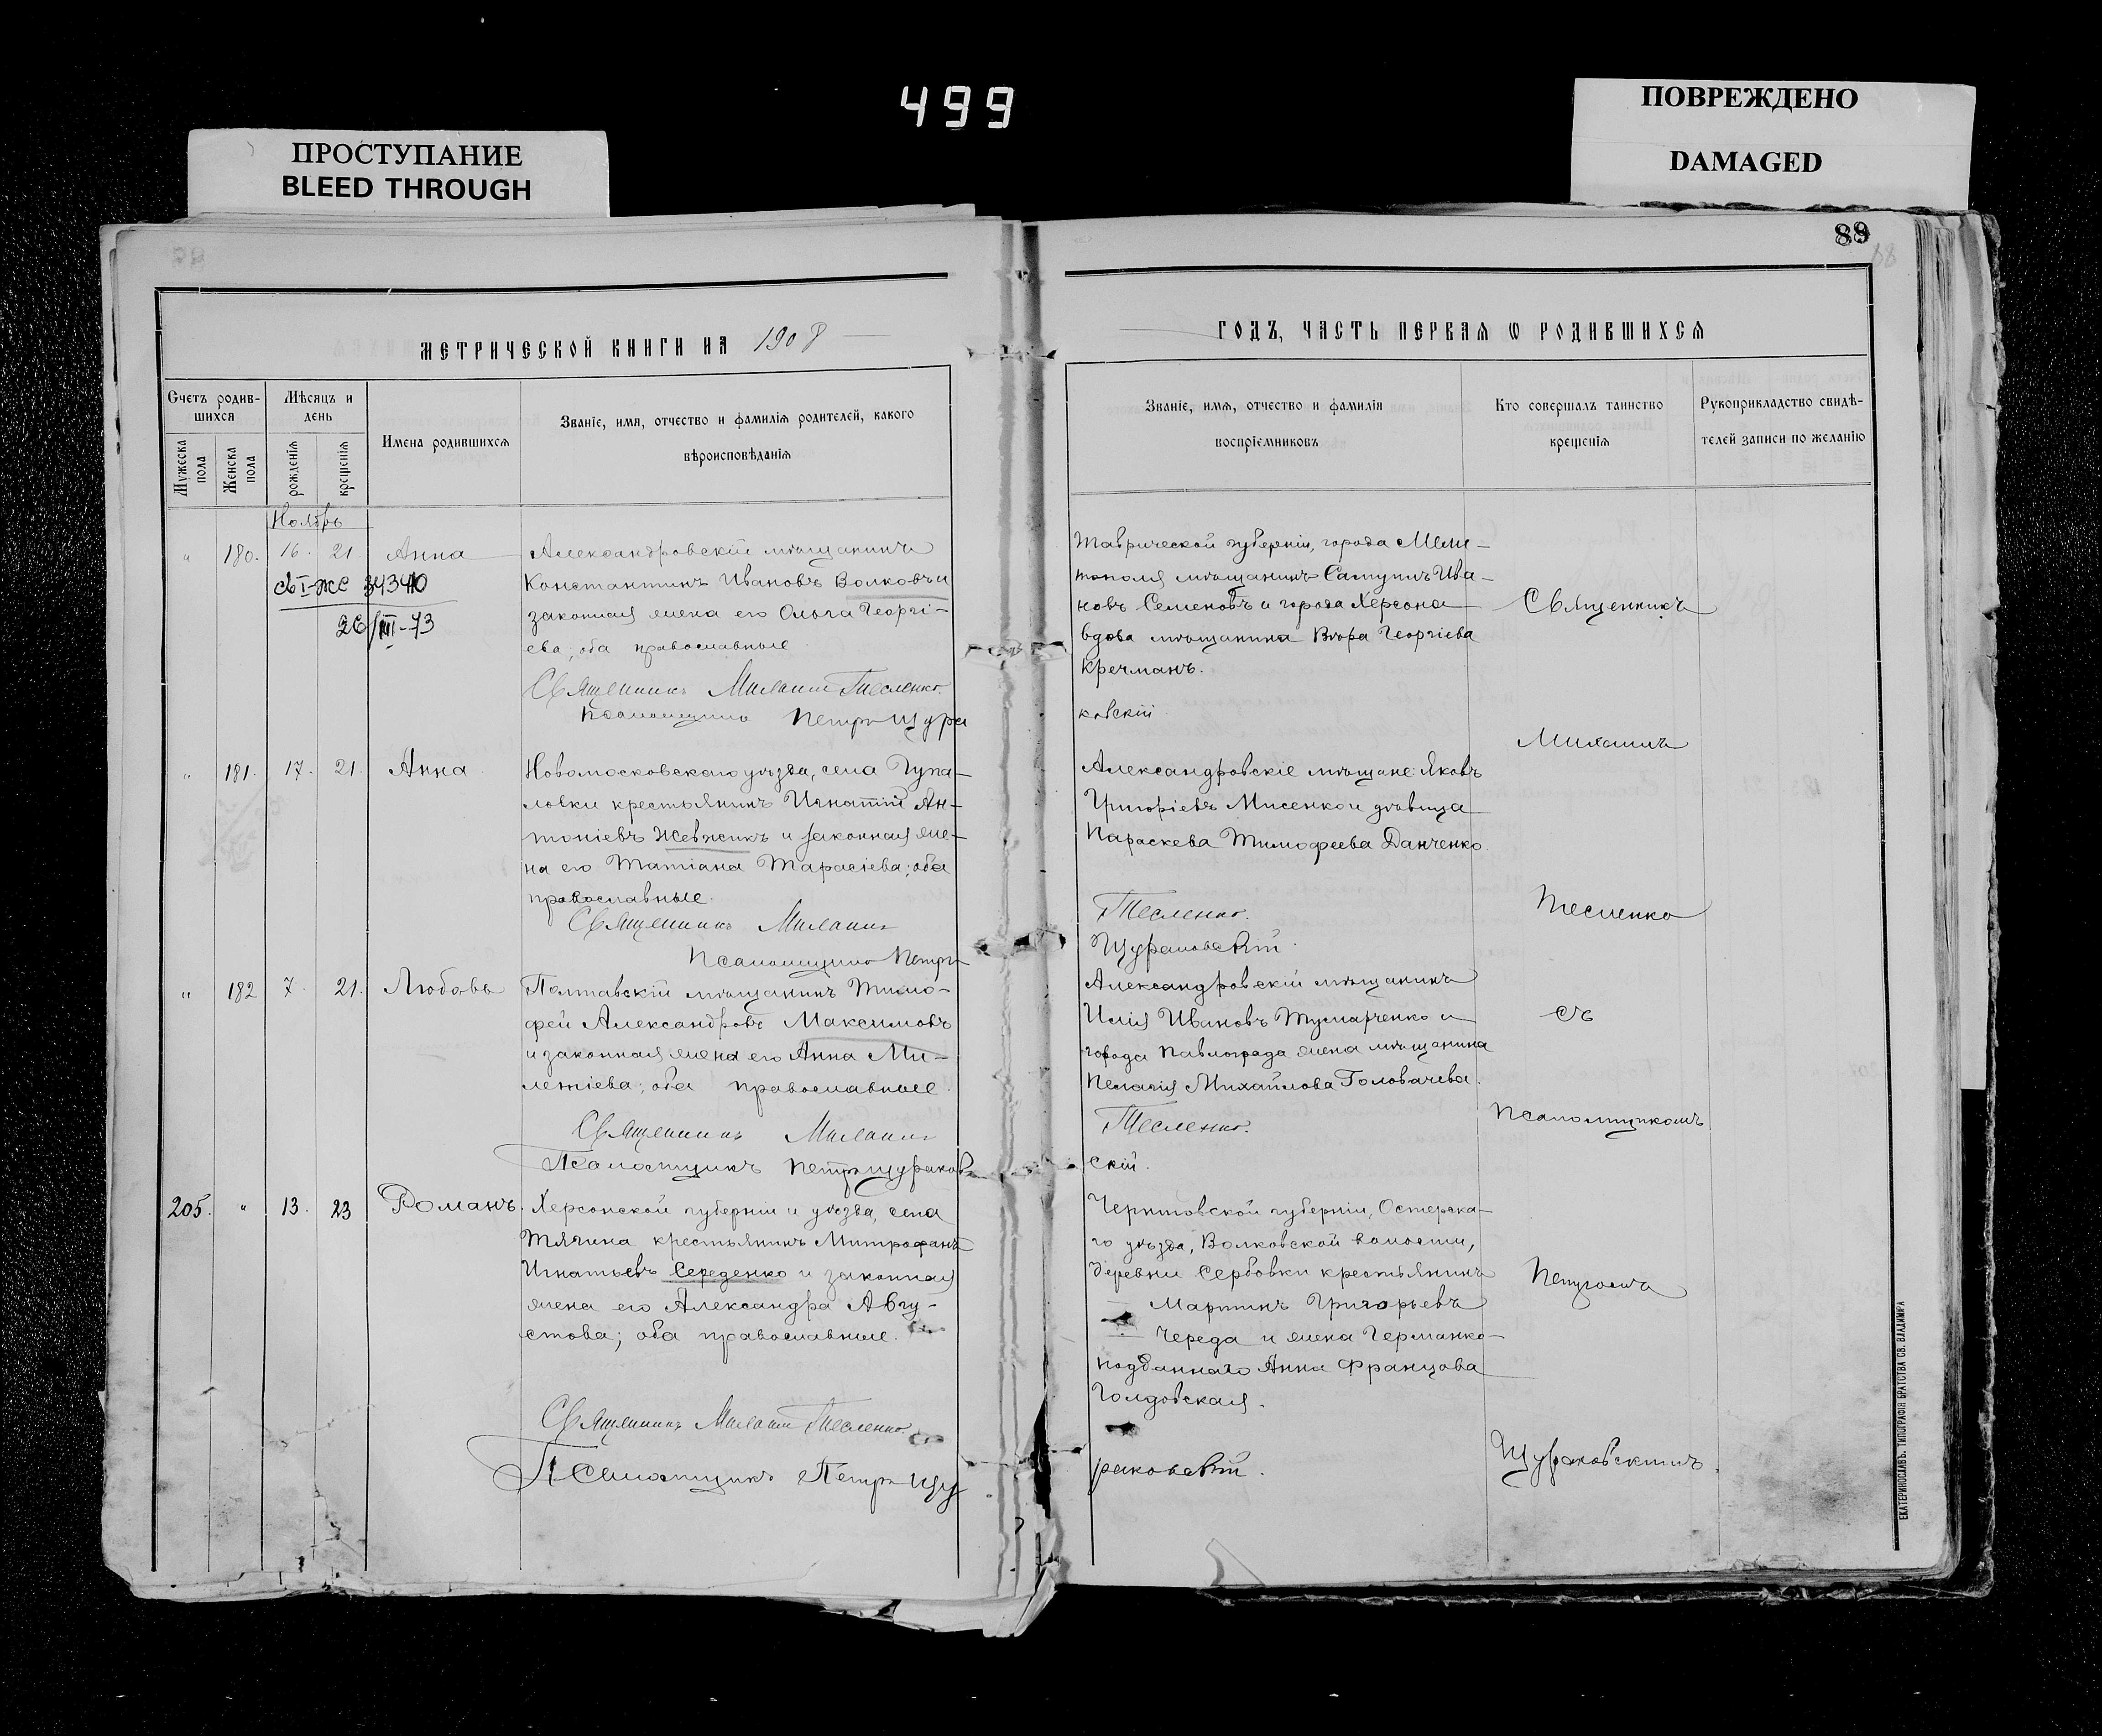 499
ПРОСТУПАНИЕ
BLEED THROUGH
ПОВРЕЖДЕНО
DAMAGED
89
МЕТРИЧЕСКОЙ КНИГИ НА 1908
Счетъ родив-
шихся
Мѣсяцъ и
день
Мужеска
пола
Женска
пола
рожденія
крещенія
Имена родившихся
Званіе, имя, отчество и фамилія родителей, какого
вѣроисповѣданія
Ноябрь
" 180. 16. 21. Анна
Александровскій мѣщанинъ
Константинъ Ивановъ Волковъ и
законная жена его Ольга Георгі-
ева; оба православные
св I-ЖС 34340
26/III-73
Священникъ Михаилъ Тесленко.
Псаломщикъ Петръ Щура
" 181. 17. 21. Анна
Новомосковскаго уѣзда, села Гупа-
ловки крестьянинъ Игнатій Ан-
тоніевъ Жевжикъ и законная же-
на его Татіана Тарасіева; оба
православные.
Священникъ Михаилъ
Псаломщикъ Петръ
" 182 7. 21. Любовь
Полтавскій мѣщанинъ Тимо-
фей Александровъ Максимовъ
и законная жена его Анна Ми-
летіева; оба православные.
Священникъ Михаилъ
Псаломщикъ Петръ Щураков
205. " 13. 23 Романъ.
Херсонской губерніи и уѣзда, села
Тягина крестьянинъ Митрофанъ
Игнатьевъ Середенко и законная
жена его Александра Авгу-
стова; оба православные.
Священникъ Михаилъ Тесленко
Псаломщикъ Петръ Щу
ГОДЪ, ЧАСТЬ ПЕРВАЯ Ѡ РОДИВШИХСЯ
Званіе, имя, отчество и фамилія
воспріемниковъ
Кто совершалъ таинство
крещенія
Рукоприкладство свидѣ-
телей записи по желанію
Таврической губерніи, города Мели-
тополя мѣщанинъ Сатунинъ Ива-
новъ Семеновъ и города Херсона
вдова мѣщанина Вѣра Георгіева
Кречманъ.
ковскій
Александровскіе мѣщане: Яковъ
Григоріевъ Мисенко и дѣвица
Параскева Тимофеева Данченко.
Тесленко.
Щураковскій.
Александровскій мѣщанинъ
Илія Ивановъ Тумарченко и
города Павлограда жена мѣщанина
Пелагія Михайлова Головачева.
Тесленко.
скій.
Черниговской губерніи, Остерска-
го уѣзда, Волковской волости,
деревни Сербовки крестьянинъ
Мартинъ Григорьевъ
Череда и жена Германко-
подданнаго Анна Францова
Голдовская.
раковскій.
Священникъ
Михаилъ
Тесленко
съ
псаломщикомъ
Петромъ
Щураковскимъ.
ЕКАТЕРИНОСЛАВЪ. ТИПОГРАФІЯ БРАТСТВА СВ. ВЛАДИМІРА